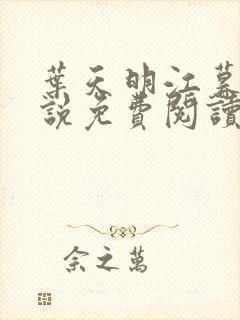 葉天明江暮
説免費閱讀
余之萬